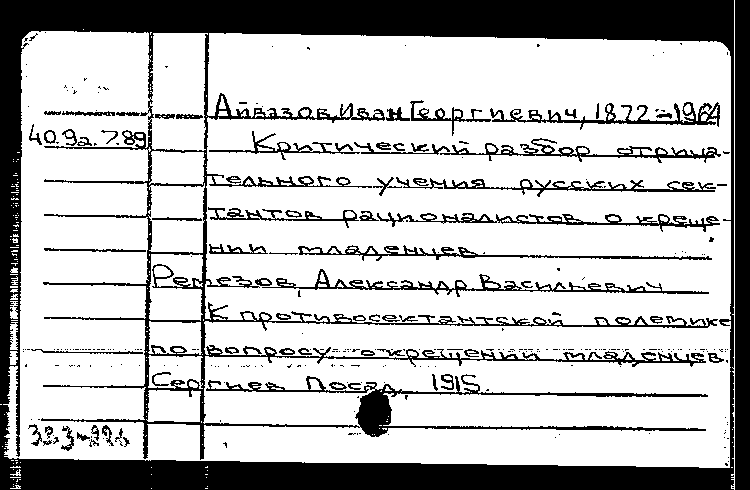 Айвазов, Иван Георгиевич, 1872-1964
40.9а.7.89
Критический разбор отрица-
тельного учения русских сек-
тантов рационалистов о креще-
нии младенцев
Ремезов, Александр Васильевич
К противосектантской полемике
по вопросу о крещении младенцев.
Сергиев Посад, 1915.